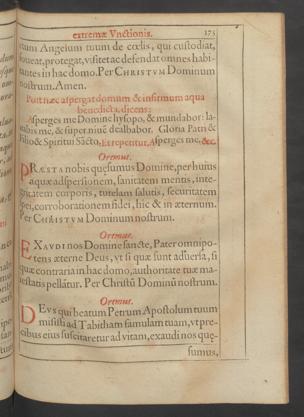 extremæ Vnctionis. 175
ctum Angelum tuum de cœlis, qui custodiat,
foueat, protegat, visitet ac defendat omnes habi-
tantes in hac domo. Per CHRISTVM Dominum
nostrum. Amen.
Post hæc aspergat domum & infirmum aqua
benedicta, dicens:
Asperges me Domine hysopo, & mundabor: la-
uabis me, & super niuē dealbabor. Gloria Patri &
Filio & Spiritui Sācto. Et repetitur, Asperges me, &c.
Oremus.
PRÆSTA nobis quęsumus Domine, per huius
aquæ adspersionem, sanitatem mentis, inte-
gritatem corporis, tutelam salutis, securitatem
spei, corroborationem fidei, hic & in æternum.
Per CHRISTVM Dominum nostrum.
Oremus.
EXAVDI nos Domine sancte, Pater omnipo-
tens æterne Deus, vt si quæ sunt aduersa, si
quæ contraria in hac domo, authoritate tuæ ma-
iestatis pellātur. Per Christū Dominū nostrum.
Oremus.
DEVS qui beatum Petrum Apostolum tuum
misisti ad Tabitham famulam tuam, vt pre-
cibus eius suscitaretur ad vitam, exaudi nos quę-
sumus,